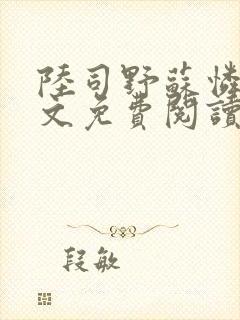 陸司野蘇憐
文免費閱讀
段敏